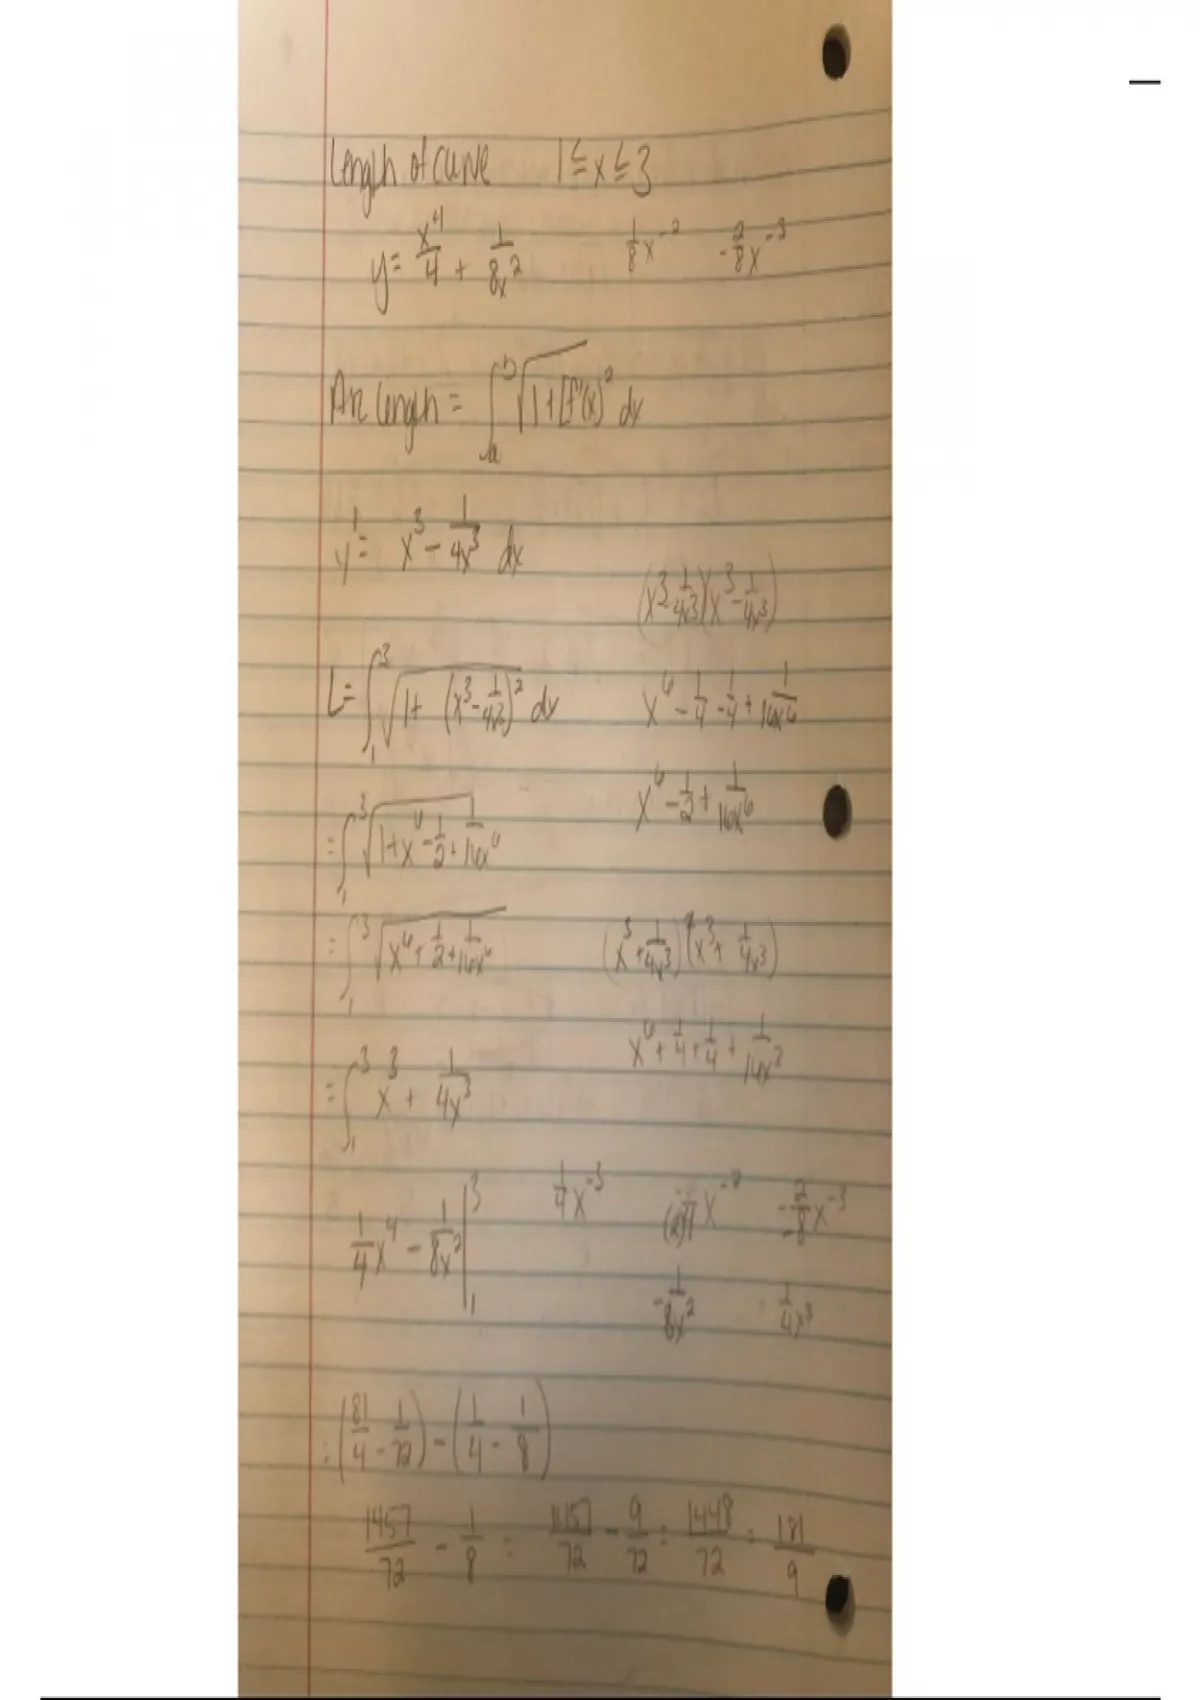 Length of curve 1 ≤ x ≤ 3
y = x^4/4 + 1/8x^2    1/8 x^-2    -2/8 x^-3
Arc length = ∫_a^b √1+[f'(x)^2 dx
y' = x^3 - 1/4x^3 dx
(x^3 - 1/4x^3)(x^3 - 1/4x^3)
L = ∫_1^3 √1+ (x^3 - 1/4x^3)^2 dx    x^6 - 1/4 - 1/4 + 1/16x^6
x^6 - 1/2 + 1/16x^6
= ∫_1^3 √1+x^6 - 1/2 + 1/16x^6
= ∫_1^3 √x^6 + 1/2 + 1/16x^6    (x^3 + 1/4x^3)(x^3 + 1/4x^3)
x^6 + 1/4 + 1/4 + 1/16x
= ∫_1^3 x^3 + 1/4x^3
1/4 x^4 - 1/8x^2 |_1^3    1/4 x^-3    -2/-8 x^-3
-1/8x^2    1/4x^3
= (81/4 - 1/72) - (1/4 - 1/8)
1457/72 - 1/8 = 1457/72 - 9/72 = 1448/72 = 181/9